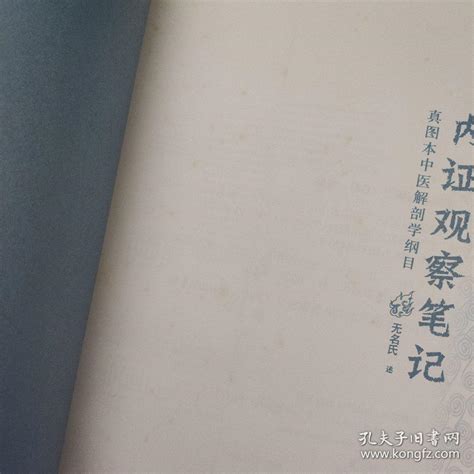 内证观察笔记
真图本中医解剖学纲目
无名氏 述
孔夫子旧书网
www.kongfz.com